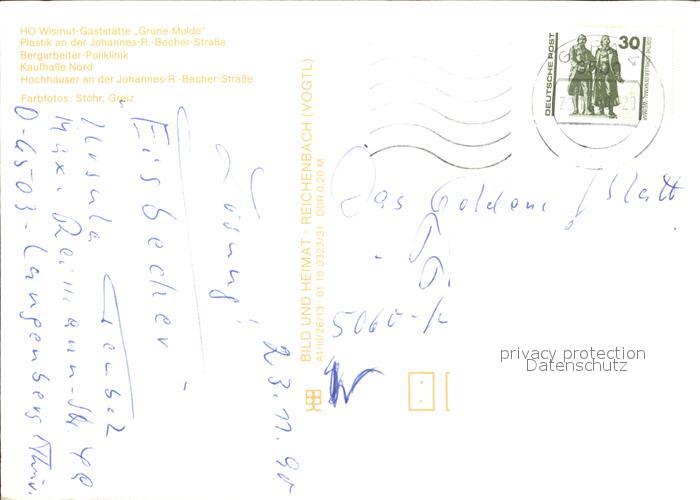 HO Wismut-Gaststätte „Grüne Mulde"
Plastik an der Johannes-R.-Becher-Straße
Bergarbeiter-Poliklinik
Kaufhalle Nord
Hochhäuser an der Johannes-R.-Becher-Straße
Farbfotos: Stöhr, Greiz
Lösung:
Eisbecher
Max-Reimann-Str. 49
0-6503-Langenberg Thür.
23.11.90
BILD UND HEIMAT · REICHENBACH (VOGTL)
A1/III/26/13 · 01 10 0323/31 · DDR 0,20 M
DEUTSCHE POST
30
Das Goldene Blatt
5060
privacy protection
Datenschutz